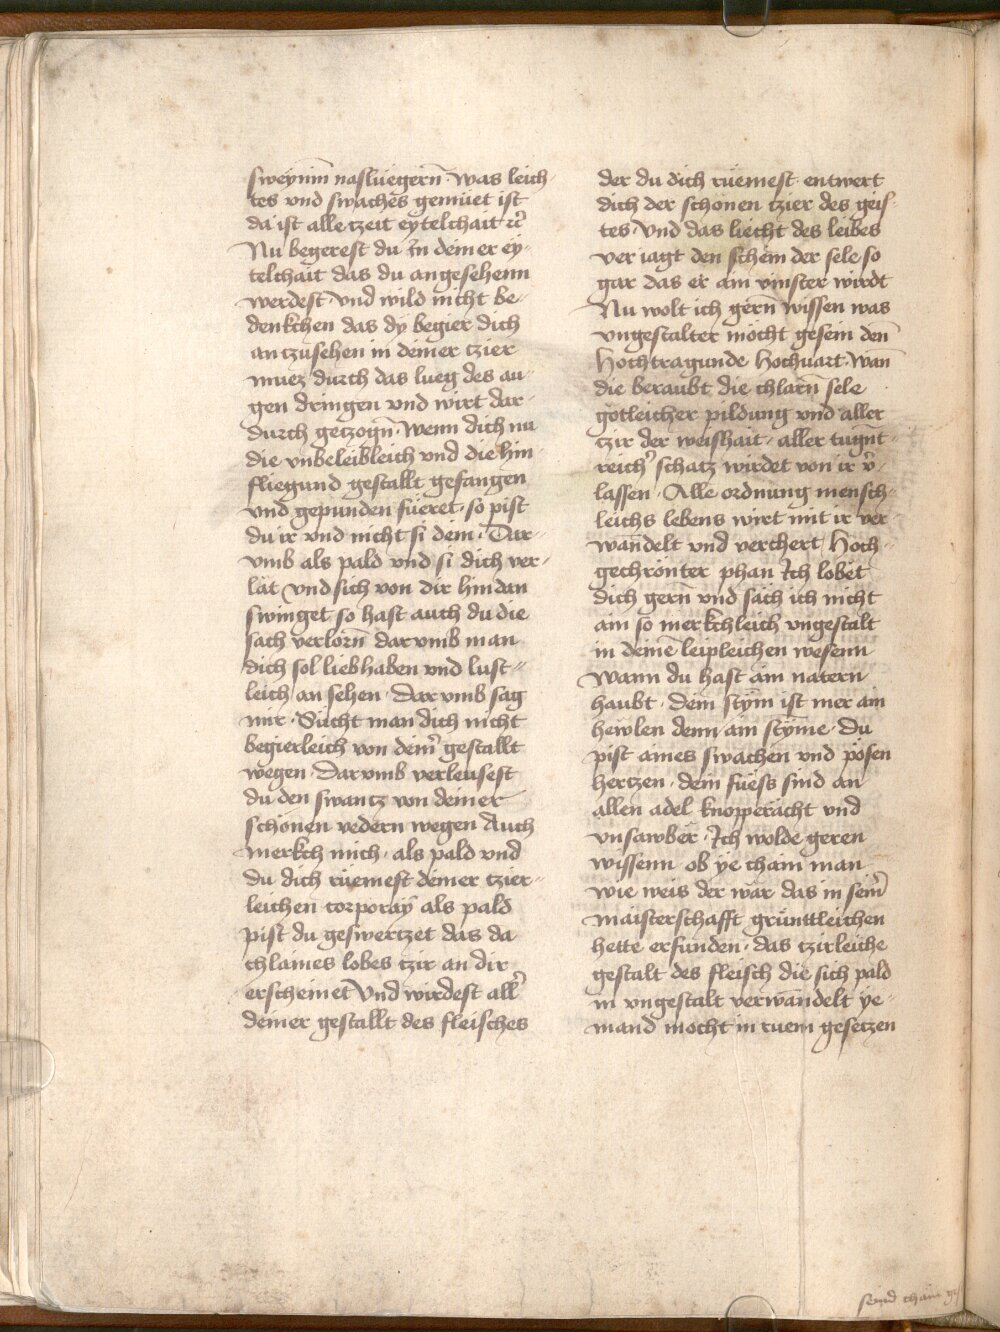 sweynim̄ nasluegern̄ · was leich
tes vnd swaches gemüet ist
da ist alle tzeit eytelchait ꝛc̄
Nu begerest du In deiner ey-
telchait das du angesehenn
werdest · Vnd wild nicht be-
denkchen das dy begier dich
an tzusehen in deiner tzier
muez durch das lueg des au-
gen dringen vnd wirt dar-
durch getzogn̄ · Wenn dich nu
die vnbeleibleich vnd die hin
fliegund gestallt gefangen
vnd gepunden füeret · so pist
du ir vnd nicht si dein · Dar-
vmb als pald vnd si dich ver-
lat Vnd sich von dir hindan
swinget so hast auch du die
sach verlorn̄ dar vmb man
dich sol lieb haben vnd lust-
leich an sehen · Dar vmb sag
mir · Sücht man dich nicht
begierleich von deinr̄ gestallt
wegen · Dar vmb verleusest
du den swantz von deiner
schönen vedern wegen Auch
merkch mich · als pald vnd
du dich rüemest deiner tzier-
leichen corporaÿ als pald
pist du geswertzet das da
chlaines lobes tzir an dir
erscheinet Vnd wirdest all̄
deiner gestallt des fleisches
der du dich rüemest · entwert
dich der schönen tzier des geis-
tes · Vnd das liecht des leibes
ver iagt den schein der sele so
gar das er ain vinster wirdt
Nu wolt ich gern̄ wissen was
vngestalter möcht gesein den̄
Hochtragunde Hochuart · Wan̄
die beraubt die chlarn̄ sele
götleicher pildung vnd aller
tzir der weishait · aller tugnt-
reichr̄ schatz wirdet von ir v̄-
lassen · Alle ordnung mensch-
leichs lebens wirt mit ir ver
wandelt vnd verchert Hoch-
gechrönter phan Ich lobet
dich gern̄ vnd säch ich nicht
ain so merkchleich vngestalt
in deinē leipleichen wesenn
Wann du hast ain natern
haubt · dein stym̄ ist mer ain
hewlen denn ain stym̄e · Du
pist aines swachen vnd pösen
hertzen · dein füess sind an
allen adel knopperächt vnd
vnsawber · Ich wolde geren
wissenn ob ye chain man
wie weis der wär das in seinr̄
maisterschafft grünttleichen
hette erfunden · das tzirleiche
gestalt des fleisch die sich pald
in vngestalt verwandelt ye-
mand möcht in ruem gesetzen
seind chain